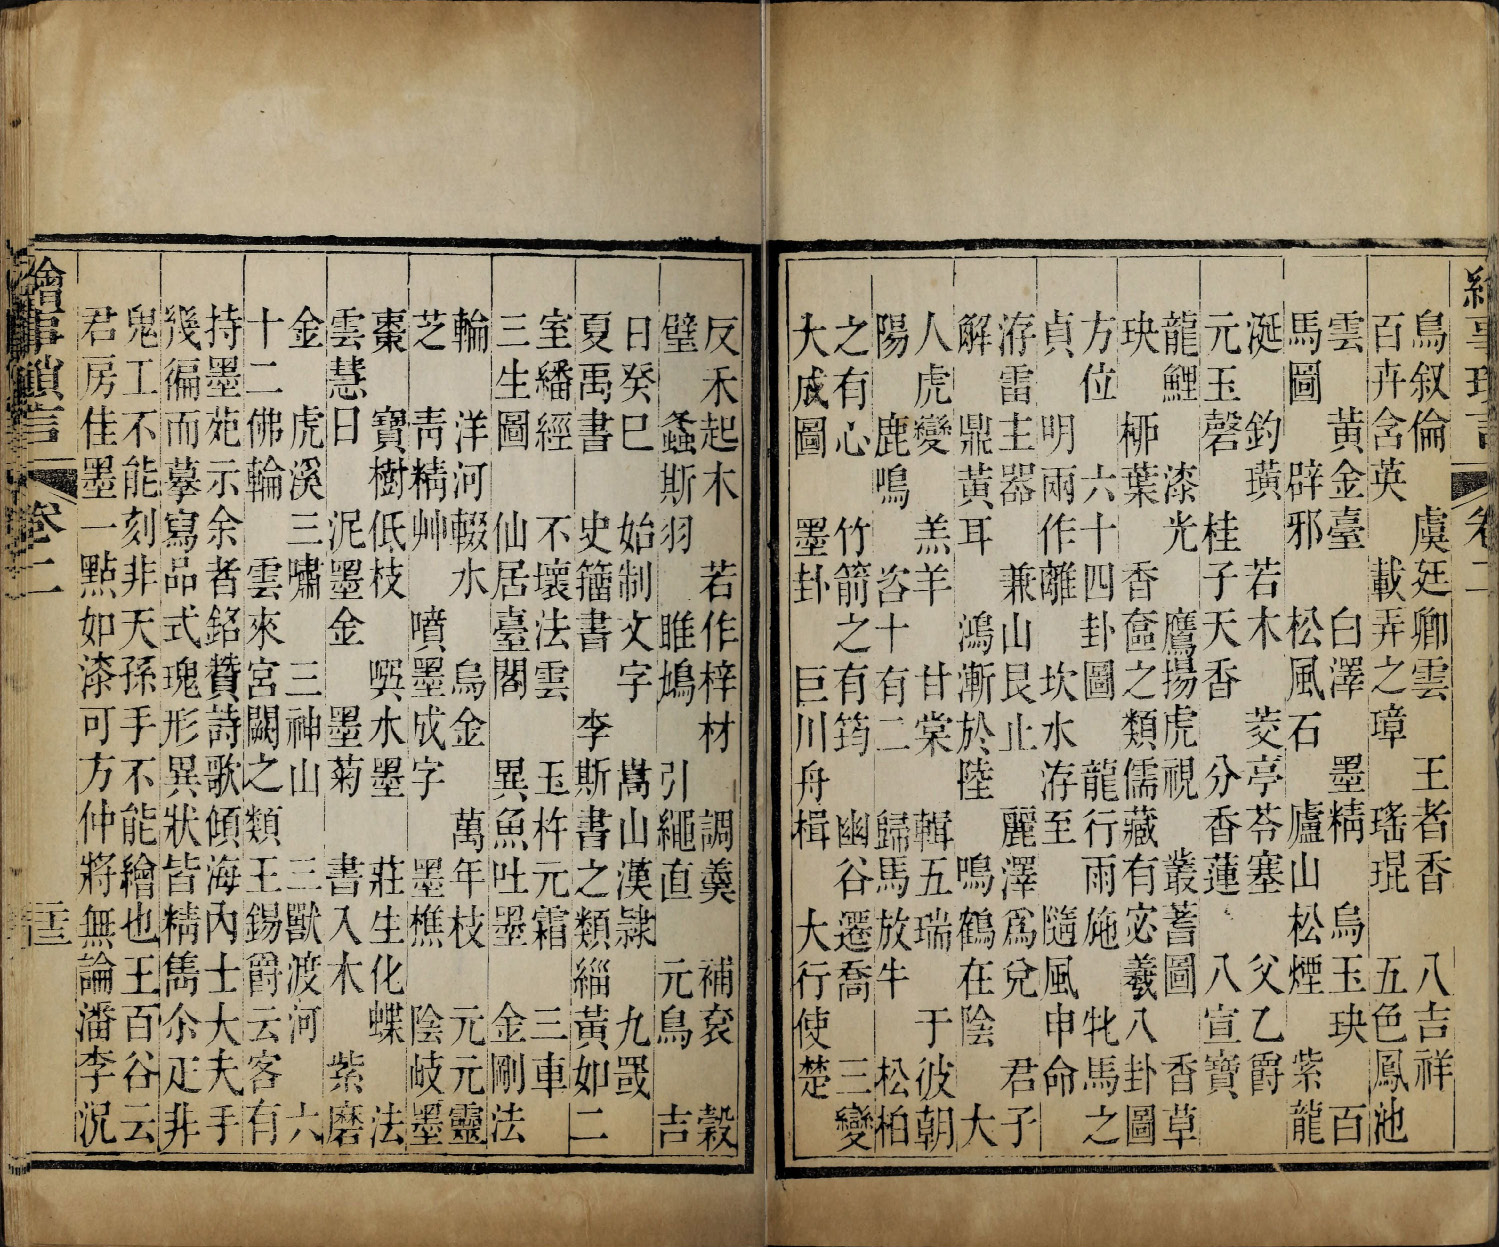 繪事瑣言 卷二
鳥叙倫 虞廷卿雲 王者香 八吉祥
百卉含英 載弄之璋 瑤琨 五色鳳池
雲 黃金臺 白澤 墨精 烏玉玦 百
馬圖 辟邪 松風石 廬山松煙 紫龍
涎 釣璜 若木 茭亭苓塞 父乙爵
元玉磬 桂子天香 分香蓮 八宣寶
龍鯉 漆光 鷹揚虎視 叢蓍圖 香草
玦 柳葉 香奩之類儒藏有宓羲八卦圖
方位 六十四卦圖 龍行雨施 牝馬之
貞 明兩作離 坎水洊至 隨風申命
洊雷主器 兼山艮止 麗澤爲兌 君子
解 鼎黃耳 鴻漸於陸 鳴鶴在陰 大
人虎變 羔羊 甘棠 輯五瑞 于彼朝
陽 鹿鳴 咨十有二 歸馬放牛 松柏
之有心 竹箭之有筠 幽谷遷喬 三變
大成圖 墨卦 巨川舟楫 大行使楚
反禾起木 若作梓材 調羹 補衮 穀
璧 螽斯羽 雎鳩 引繩直 元鳥 吉
日癸巳 始制文字 嵩山漢隷 九罭
夏禹書 史籀書 李斯書之類緇黃如二
室繙經 不壞法雲 玉杵元霜 三車
三生圖 仙居臺閣 異魚吐墨 金剛法
輪 洋河輟水 烏金 萬年枝 元元靈
芝 靑精艸 噴墨成字 墨樵 陰岐墨
棗 寶樹低枝 噀水墨 莊生化蝶 法
雲慧日 泥墨金 墨菊 書入木 紫磨
金 虎溪三嘯 三神山 三獸渡河 六
十二佛輪 雲來宮闕之類王錫爵云客有
持墨苑示余者銘贊詩歌傾海內士大夫手
幾徧而摹寫品式瑰形異狀皆精雋尒疋非
鬼工不能刻非天孫手不能繪也王百谷云
君房佳墨一點如漆可方仲將無論潘李況
繪事瑣言 卷二